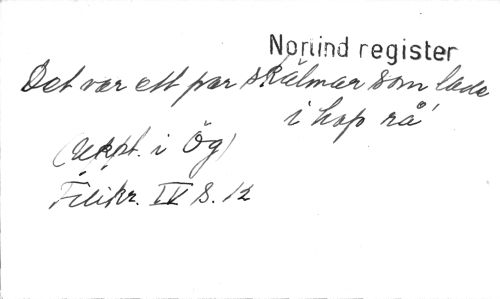 Norlind register
Det var ett par skälmar som lade
i hop rå'
(uppt. i Ög)
Filikr. IV S. 12